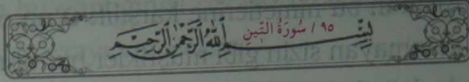 ٩٥ / سُورَةُ التّينِ
بِسْــــمِ اللّٰهِ الرَّحْمٰنِ الرَّحيمِ